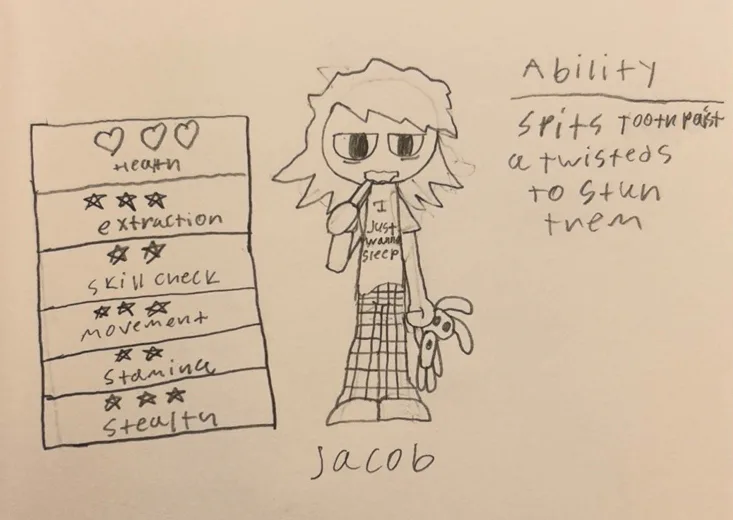 Health
extraction
skill check
movement
stamina
stealth
I
Just
wanna
sleep
Jacob
Ability
spits toothpaist
a twisteds
to stun
them